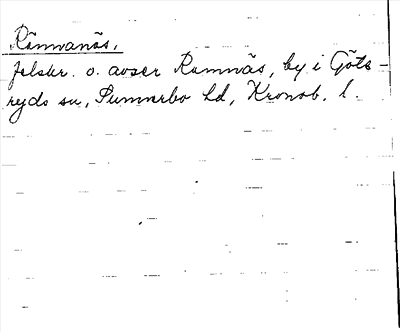 Rännanäs,
felskr. o. avser Ramnäs, by i Göte-
ryds sn, Sunnerbo hd, Kronob. l.